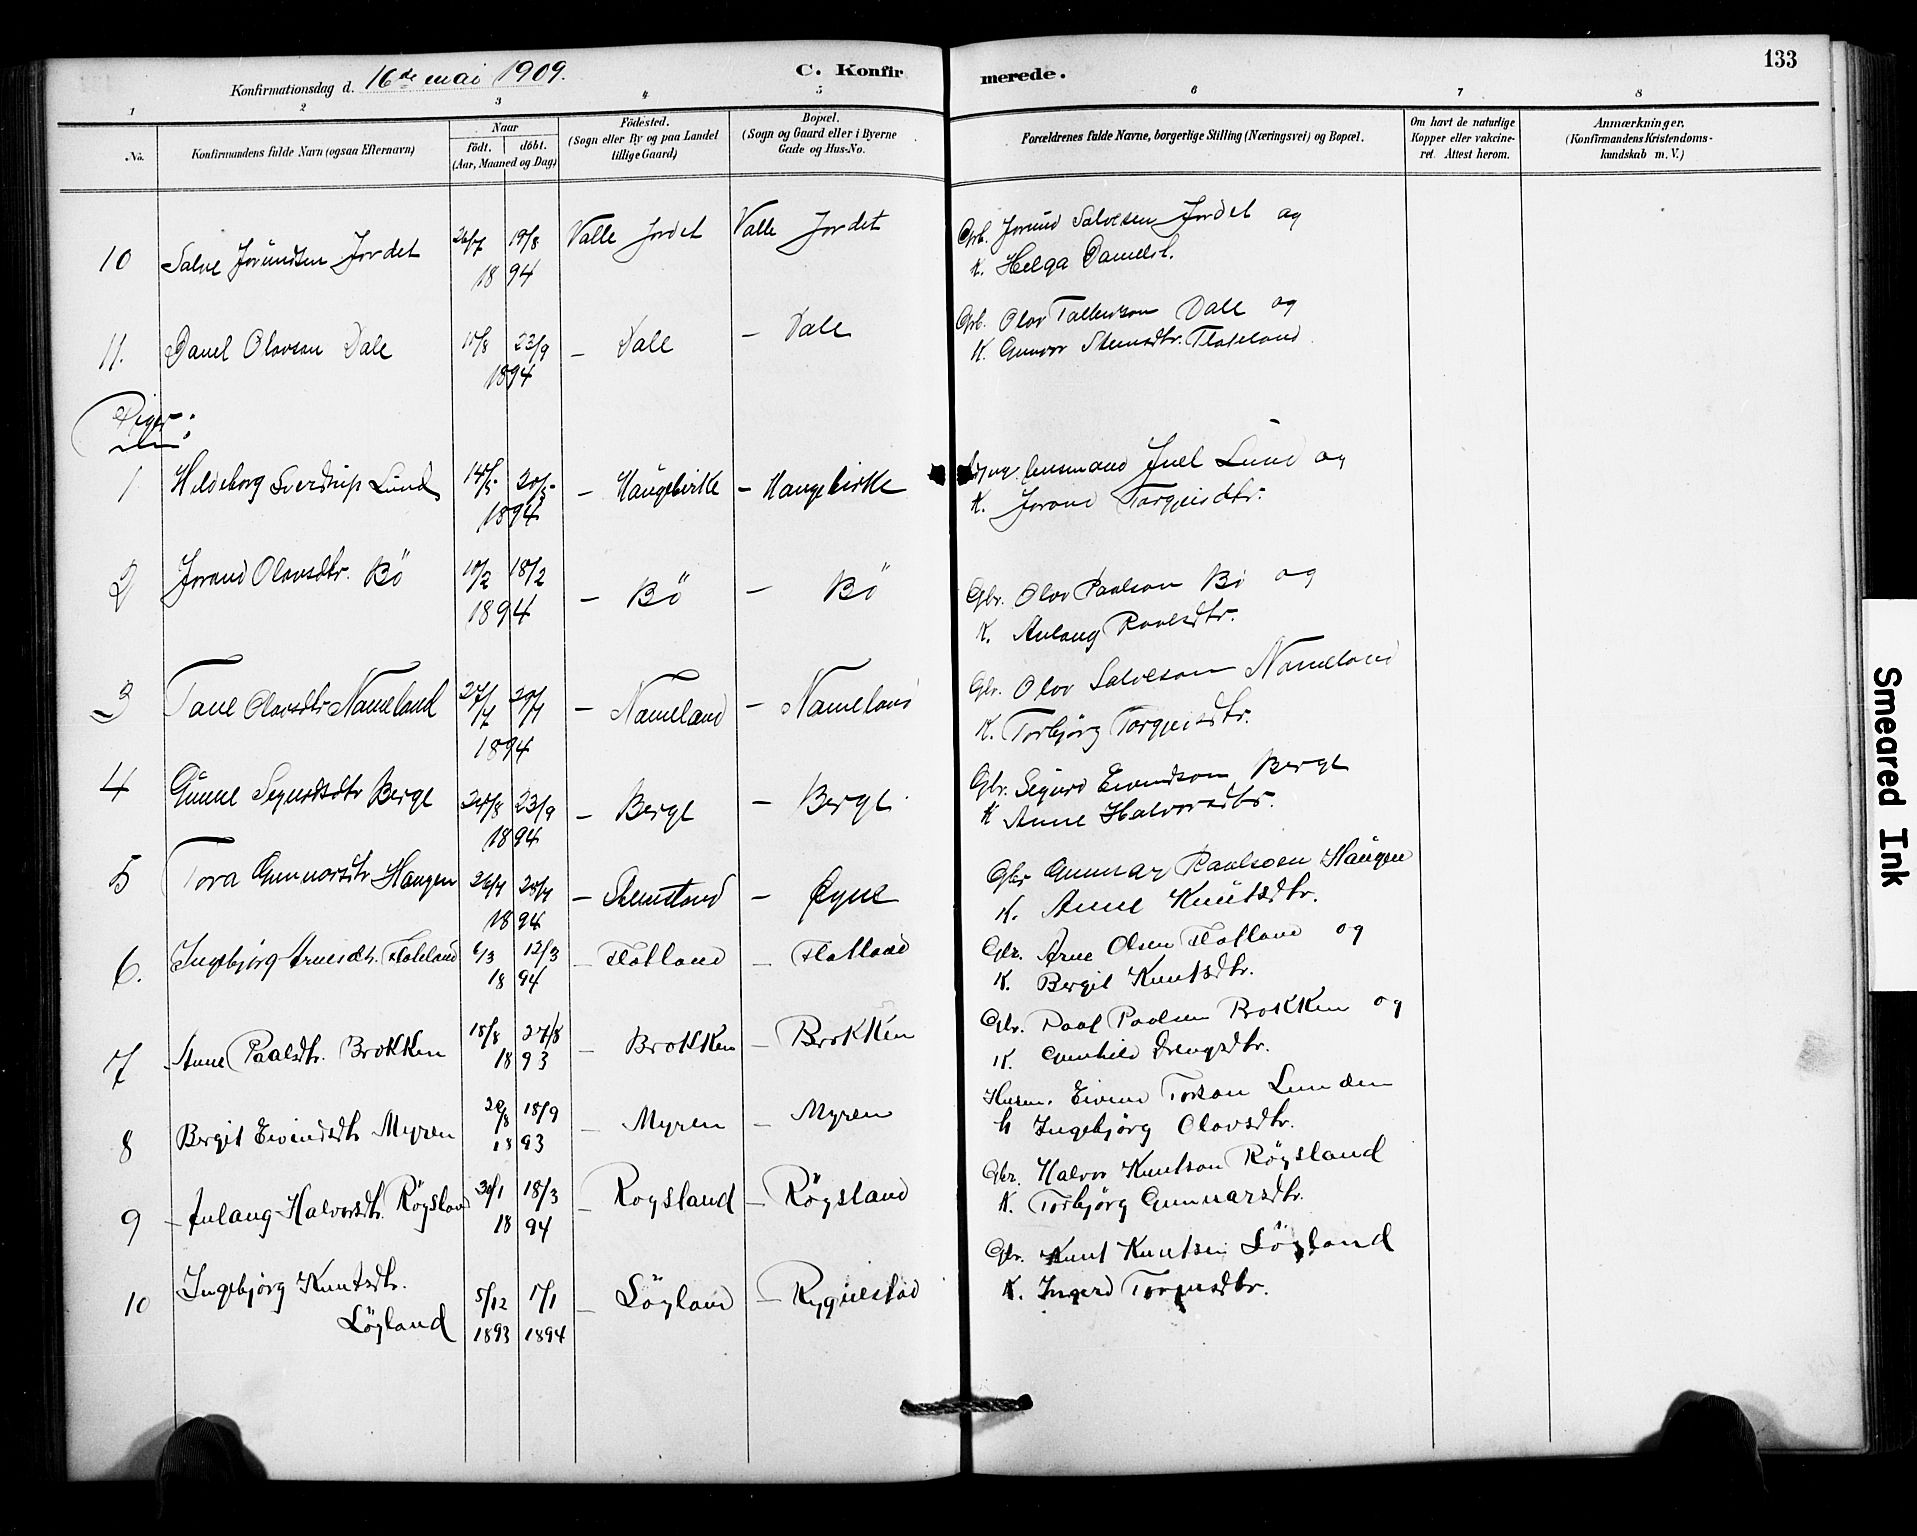 133
Konfirmationsdag d. 16de mai 1909.
C. Konfirmerede.
1 2 3 4 5 6 7 8
No.
Konfirmandens fulde Navn (ogsaa Efternavn)
Naar
födt. döbt.
(Aar, Maaned og Dag)
Födested.
(Sogn eller By og paa Landet
tillige Gaard)
Bopæl.
(Sogn og Gaard eller i Byerne
Gade og Hus-No.
Forældrenes fulde Navne, borgerlige Stilling (Næringsvei) og Bopæl.
Om havt de naturlige
Kopper eller vakcine-
ret. Attest herom.
Anmærkninger.
(Konfirmandens Kristendoms-
kundskab m. V.)
10 Salve Jorundsen Jordet 26/7 19/8 Valle Jordet Valle Jordet Gbr. Jorund Salvesen Jordet og
1894 K. Helga Danielsd.
11. Danel Olavson Dale 10/8 23/9 – Dale – Dale Gbr. Olav Tallevson Dale og
1894 K. Gunvor Steinsdtr. Flateland
Piger:
1 Hildeborg Sverdrup Lund 14/5 20/5 – Haugebirke – Haugebirke lensmand Juel Lund og
1894 K. Jorand Torgeisdtr.
2 Jorand Olavsdtr. Bö 10/2 18/2 – Bö – Bö Gbr. Olav Paalson Bö og
1894 K. Aulaug Paalsdtr.
3 Tane Olavsdtr Nomeland – Nomeland – Nomeland Gbr. Olav Salveson Nomeland
1894 K. Torbjörg Torgeisdtr.
4 Gunne Sigurdsdtr Berge 23/9 – Berge – Berge Gbr. Sigurd Eivindson Berge
1894 K Anne Halvorsdtr.
5 Tora Gunnarsdtr Haugen – – Øyne Gbr Gunnar Paalsøen Haugen
1894 K. Anne Knutsdtr.
6. Ingebjörg Arnesdtr. Flateland 6/3 12/3 – Flatland – Flatland Gbr. Arne Olsen Flatland og
1894 K. Bergit Knutsdtr.
7 Anne Paalsdtr. Brokken 18/8 27/8 – Brokken – Brokken Gbr. Paal Paalsen Brokken og
1893 K. Gunhild Drengsdtr.
8 Bergit Eivindsdtr Myren 20/8 18/9 – Myren – Myren Husm. Eivind Torson Lunden
1893 h Ingebjörg Olavsdtr.
9 Aulaug Halvorsdtr. Röysland 30/1 18/3 – Roysland – Röysland Gbr. Halvor Knutson Röysland
1894 K. Torbjörg Gunnarsdtr.
10 Ingebjörg Knutsdtr. 5/12 17/1 – Löyland – Rygnestad Gbr. Knut Knutsen Löyland
Löyland 1893 1894 K. Ingerd Torjusdtr.
Smeared Ink